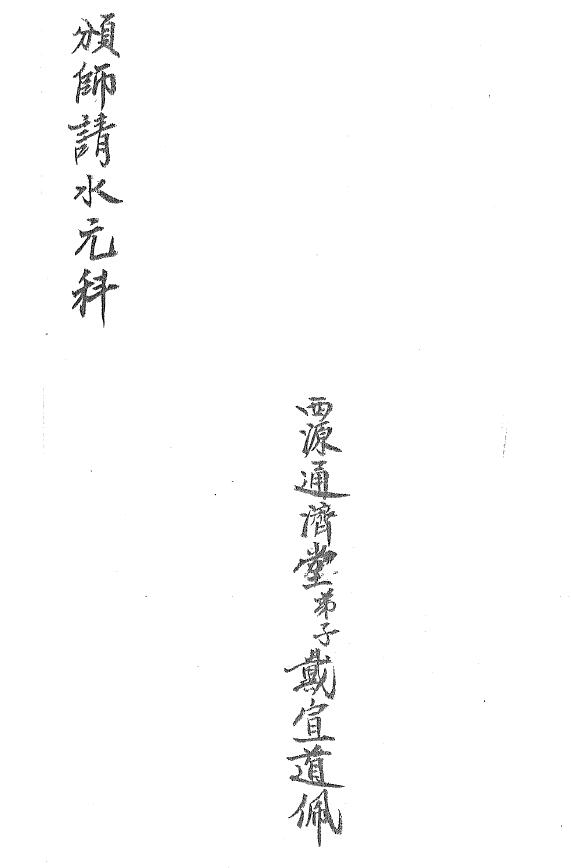 頒師請水元科
西源通濟堂弟子戴宣道佩